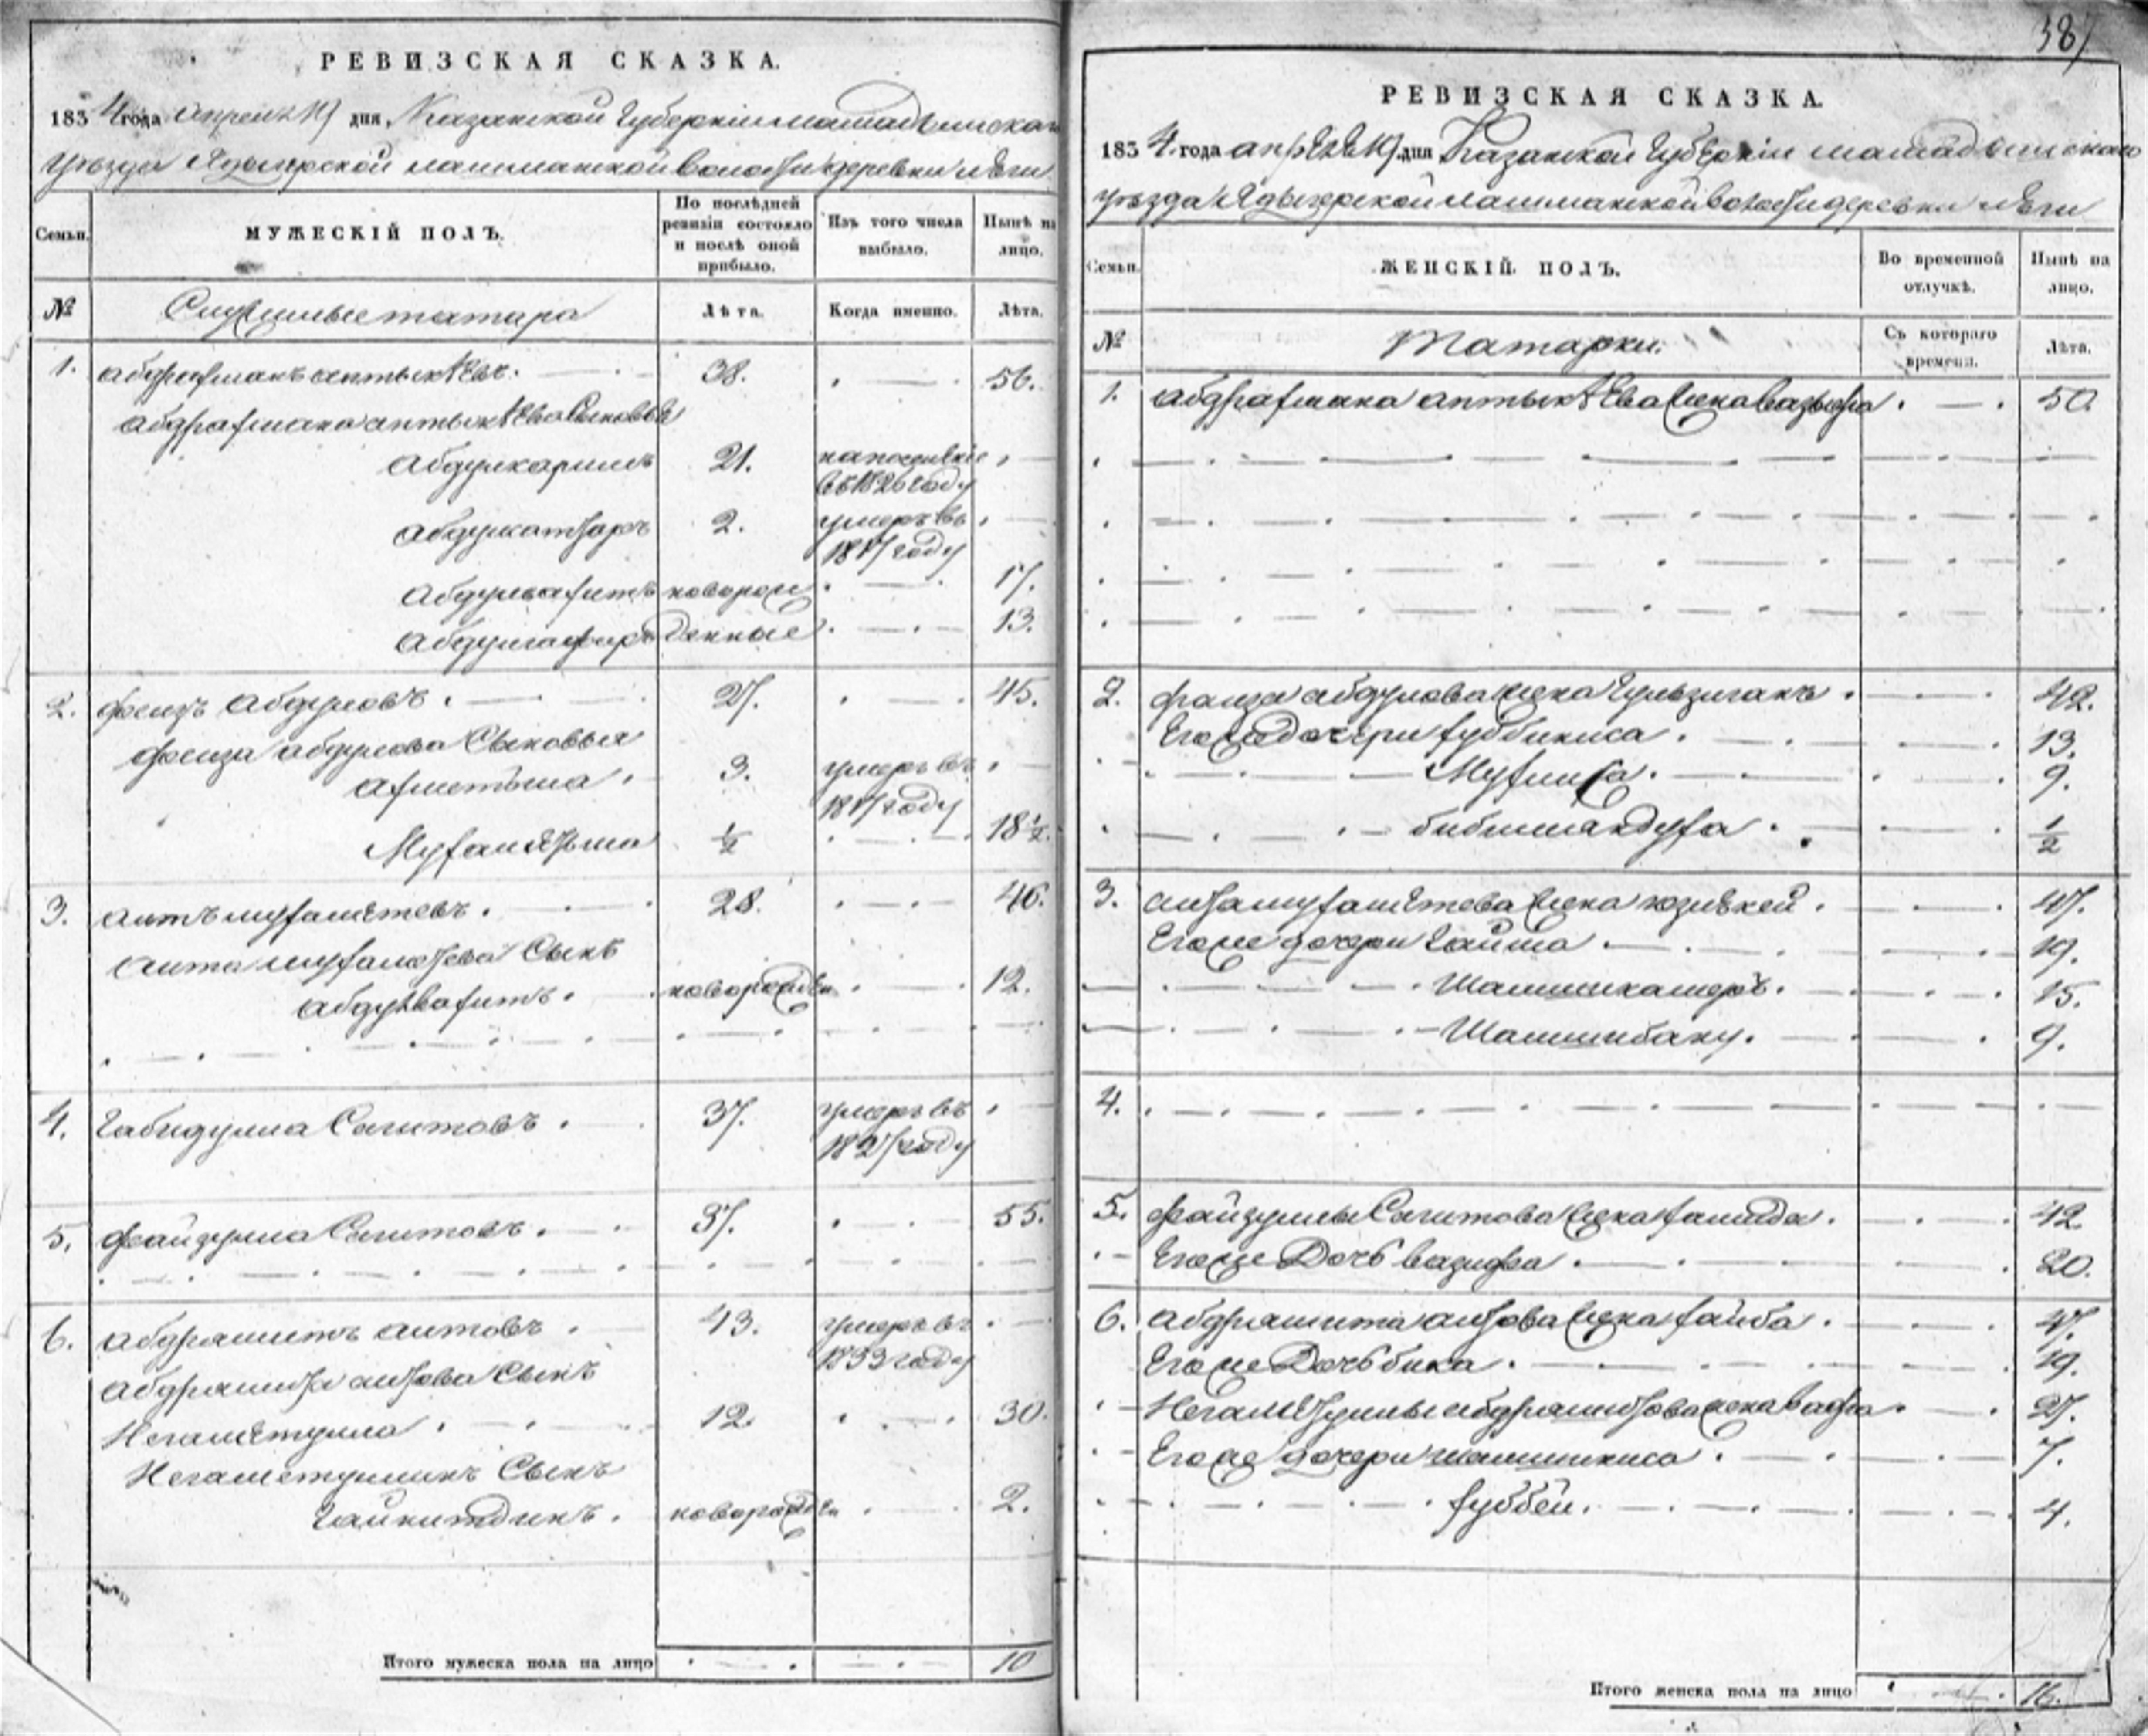 РЕВИЗСКАЯ СКАЗКА.
1834 года апреля 19 дня, Казанской Губерніи мамадышскаго
уѣзда Ядыгерской лашманской волости деревни
Семьи.
МУЖЕСКІЙ ПОЛЪ.
По послѣдней ревизіи состояло и послѣ оной прибыло.
Изъ того числа выбыло.
Нынѣ на лицо.
№
Служилые татара
Лѣта.
Когда именно.
Лѣта.
1. абдрахманъ аптыкѣевъ. 38. 56.
абдрахмана аптыкѣева Сыновья
абдулкаримъ 21. на поселѣніе
въ 1826 году
абдулкатыръ 2. умеръ въ
1817 году
абдулвахитъ новорож 17.
абдулгафаръ денные 13.
2. феизъ абдуловъ. 27. 45.
феиза абдулова Сыновья
ахметьша. 3. умеръ въ
1817 году
Мухаметьша 1/2 18 1/2.
3. аитъ мухаметевъ. 28. 46.
аита мухаметева Сынъ
абдулвахитъ. новорожден 12.
4. Габидулла Сагитовъ. 37. умеръ въ
1827 году
5. файзулла Сагитовъ. 37. 55.
6. абдрашитъ аитовъ. 43. умеръ въ
1833 году
абдрашита аитова Сынъ
Негаметулла. 12. 30.
Негаметуллинъ Сынъ
Гайнитдинъ. новорожден 2.
Итого мужеска пола на лицо 10
387
РЕВИЗСКАЯ СКАЗКА.
1834 года апреля 19 дня Казанской Губерніи мамадышскаго
уѣзда Ядыгерской лашманской волости деревни
Семьи.
ЖЕНСКІЙ ПОЛЪ.
Во временной отлучкѣ.
Нынѣ на лицо.
№
Татарки.
Съ котораго времени.
Лѣта.
1. абдрахмана аптыкѣева жена вазифа. 50.
2. фаиза абдулова жена Гульзиганъ. 42.
Его же дочери хуббиниса. 13.
Муфлиха. 9.
бибимахдуха. 1/2
3. аита мухаметева жена юзлѣкей. 47.
Его же дочери Гайша. 19.
Шамшикамеръ. 15.
Шамшибану. 9.
4.
5. файзуллы Сагитова жена халида. 42.
Его же Дочь вазифа. 20.
6. абдрашита аитова жена хайба. 47.
Его же Дочь бика. 19.
Негаметуллы абдрашитова жена вафа. 27.
Его же дочери шамшиниса. 7.
хуббеи. 4.
Итого женска пола на лицо 16.